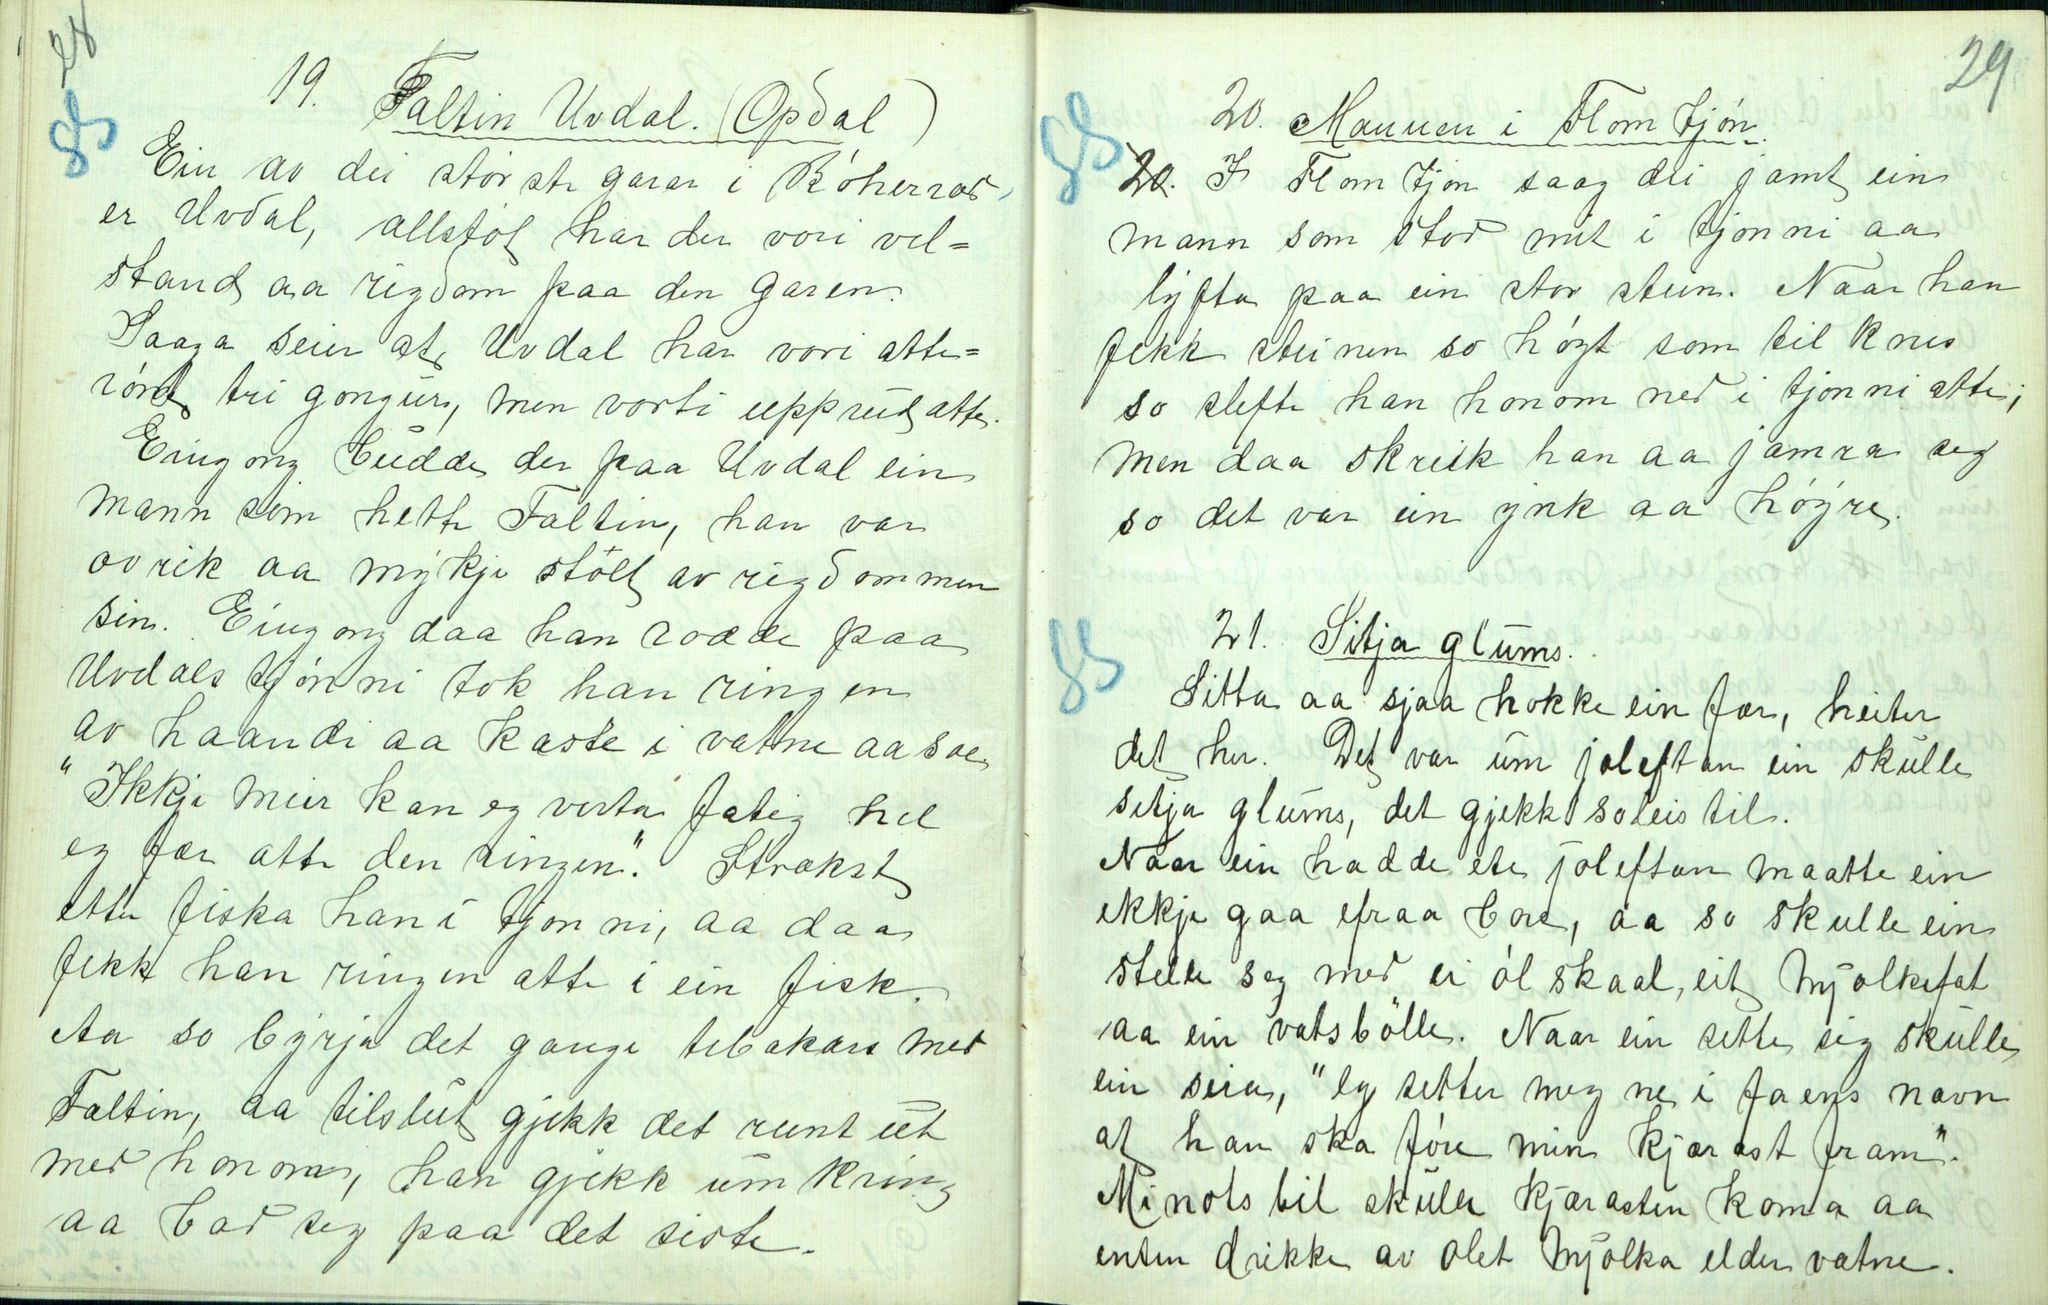 28
19. Faltin Uvdal. (Opdal)
GS
Ein av dei storste garar i Bóherrad,
er Uvdal, allstøt har der vori vel=
stand aa rigdom paa den garen.
Saaga seier at Uvdal har vori atte=
rónt tri gongur, men vorti upprud atte.
Eingong budde der paa Uvdal ein
mann som hette Faltin, han var
ovrik aa mykje stolt av rigdommen
sin. Eingong daa han rodde paa
Uvdals tjónni tok han ringen
av haandi aa kaste i vatne aa sae
"Ikkje meir kan eg verta fatig hel
eg fær atte den ringen". Strakst
ette fiska han i tjonni, aa daa
fekk han ringen atte i ein fisk.
Aa so byrja det gange tebakars med
Faltin, aa tilslut gjekk det runt ut
med honom, han gjekk umkring
aa bad seg paa det siste.
29
20. Mannen i Flom tjón.
GS
20. I Flom tjon saag dei jamt ein
mann som stod mit i tjonni aa
lyfta paa ein stor stein. Naar han
fekk steinen so høgt som til knes
so slefte han honom ned i tjonni atte;
men daa skreik han aa jamra seg
so det var ein ynk aa hóyre.
21. Sitja glums.
GS
Sitta aa sjaa hokke ein fær, heiter
det her. Det var um joleftan ein skulle
sitja glums, det gjekk soleis til.
Naar ein hadde ete joleftan maatte ein
ekkje gaa efraa bore, aa so skulle ein
stelle seg med ei ólskaal, eit mjolkefat
aa ein vatsbolle. Naar ein sette sig skulle
ein seia, "eg setter meg ne i faens navn
at han ska fóre min kjærast fram".
Minots bil skulle kjærasten koma aa
enten drikke av olet mjolka elder vatne.